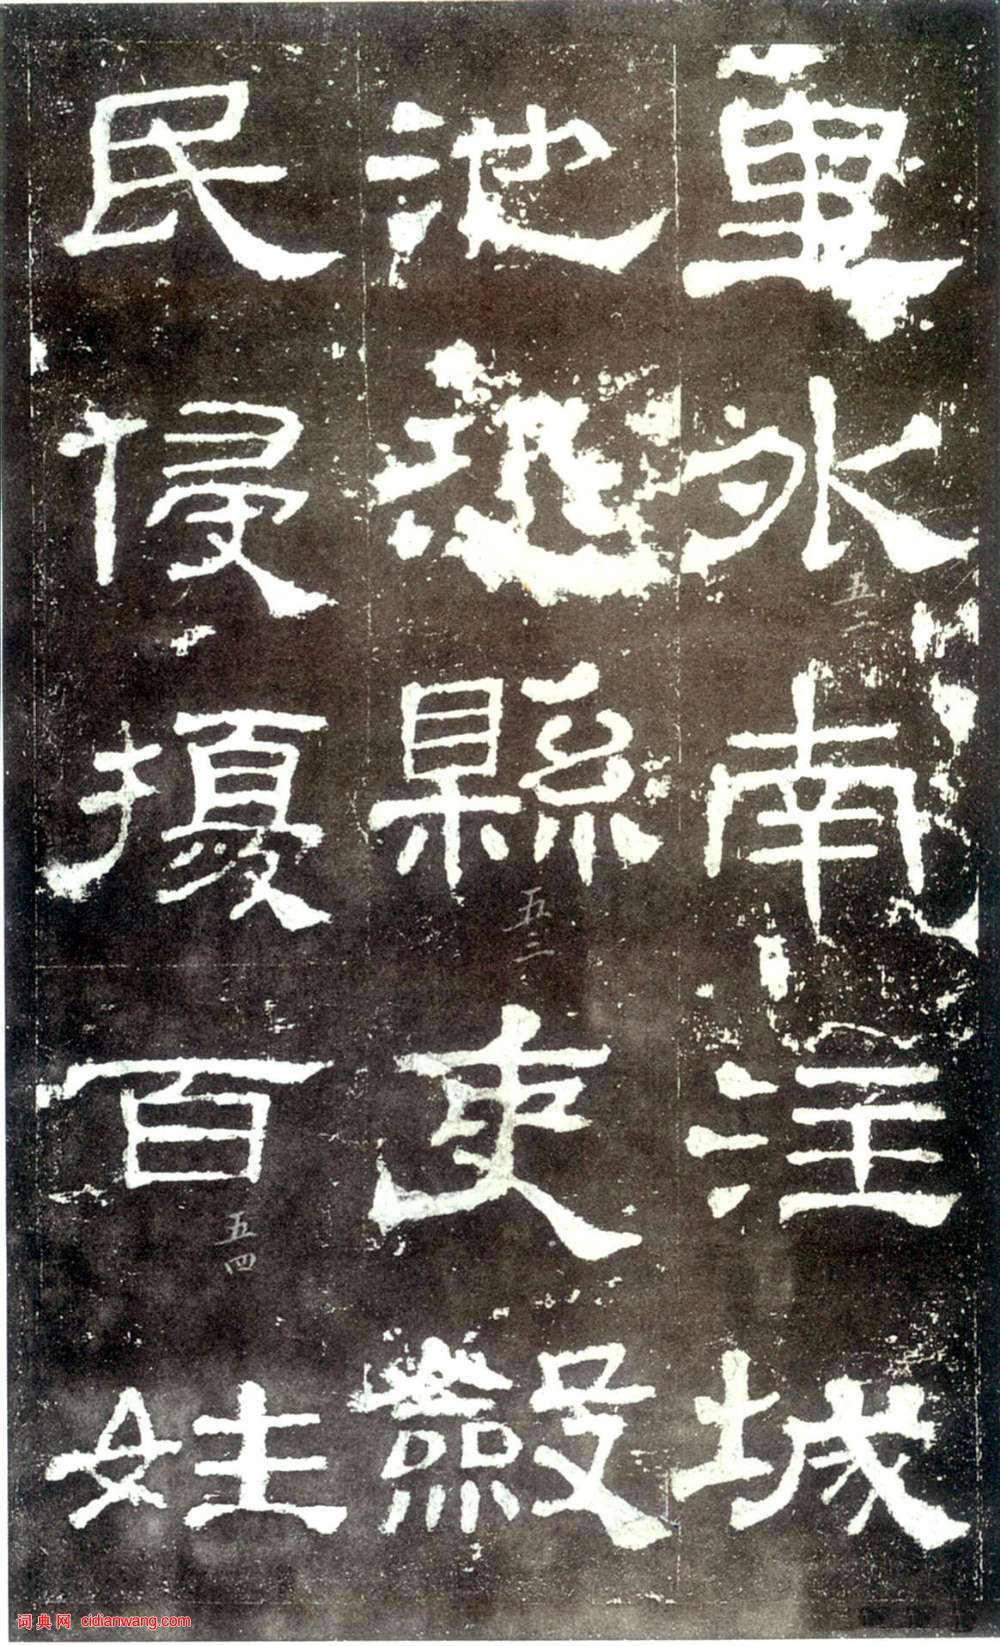 里外南注城
五二
池恐縣吏斂
五三
民侵擾百姓
五四
词典网 cidianwang.com